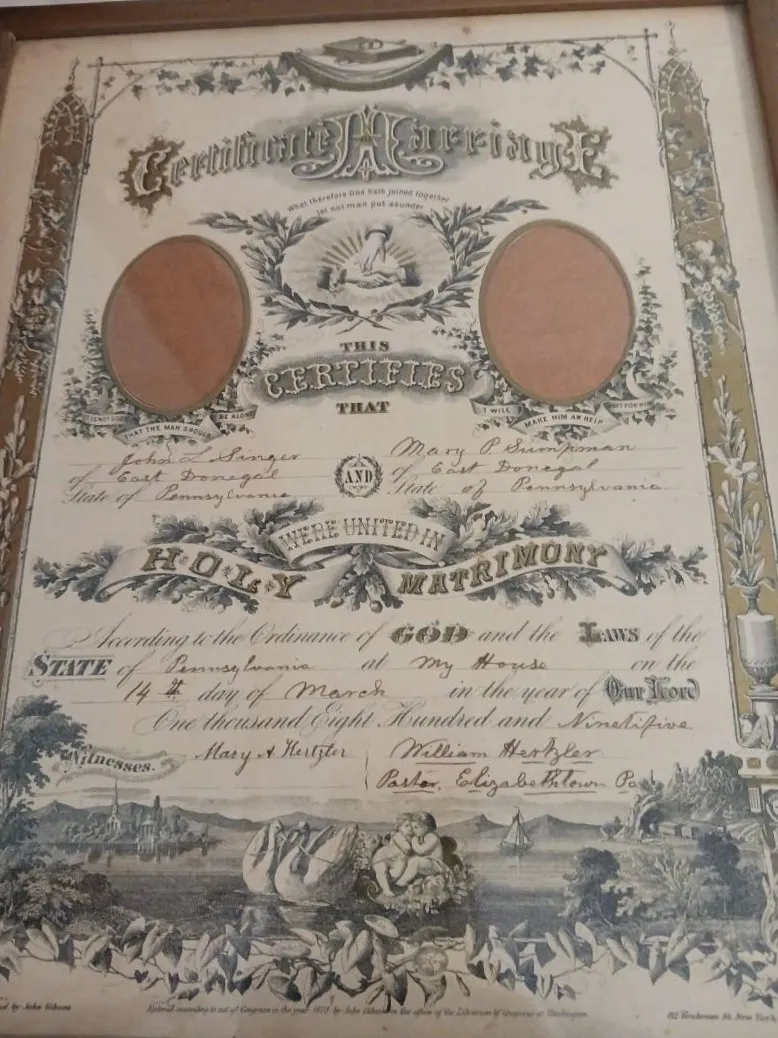 Certificate of Marriage
What therefore God hath joined together
let not man put asunder
THIS
CERTIFIES
THAT
IT IS NOT GOOD THAT THE MAN SHOULD BE ALONE
I WILL MAKE HIM AN HELP MEET FOR HIM
John L. Singer
of East Donegal
State of Pennsylvania
AND
Mary P.
of East Donegal
State of Pennsylvania
WERE UNITED IN
HOLY MATRIMONY
According to the Ordinance of GOD and the LAWS of the
STATE of Pennsylvania at My House on the
14th day of March in the year of Our Lord
One thousand Eight Hundred and Ninetifive
Witnesses.
Mary A. Hertzler
William Hertzler
Pastor, Elizabethtown Pa
by John Gibson
Entered according to act of Congress in the year by John Gibson in the office of the Librarian of Congress at Washington
St. New York